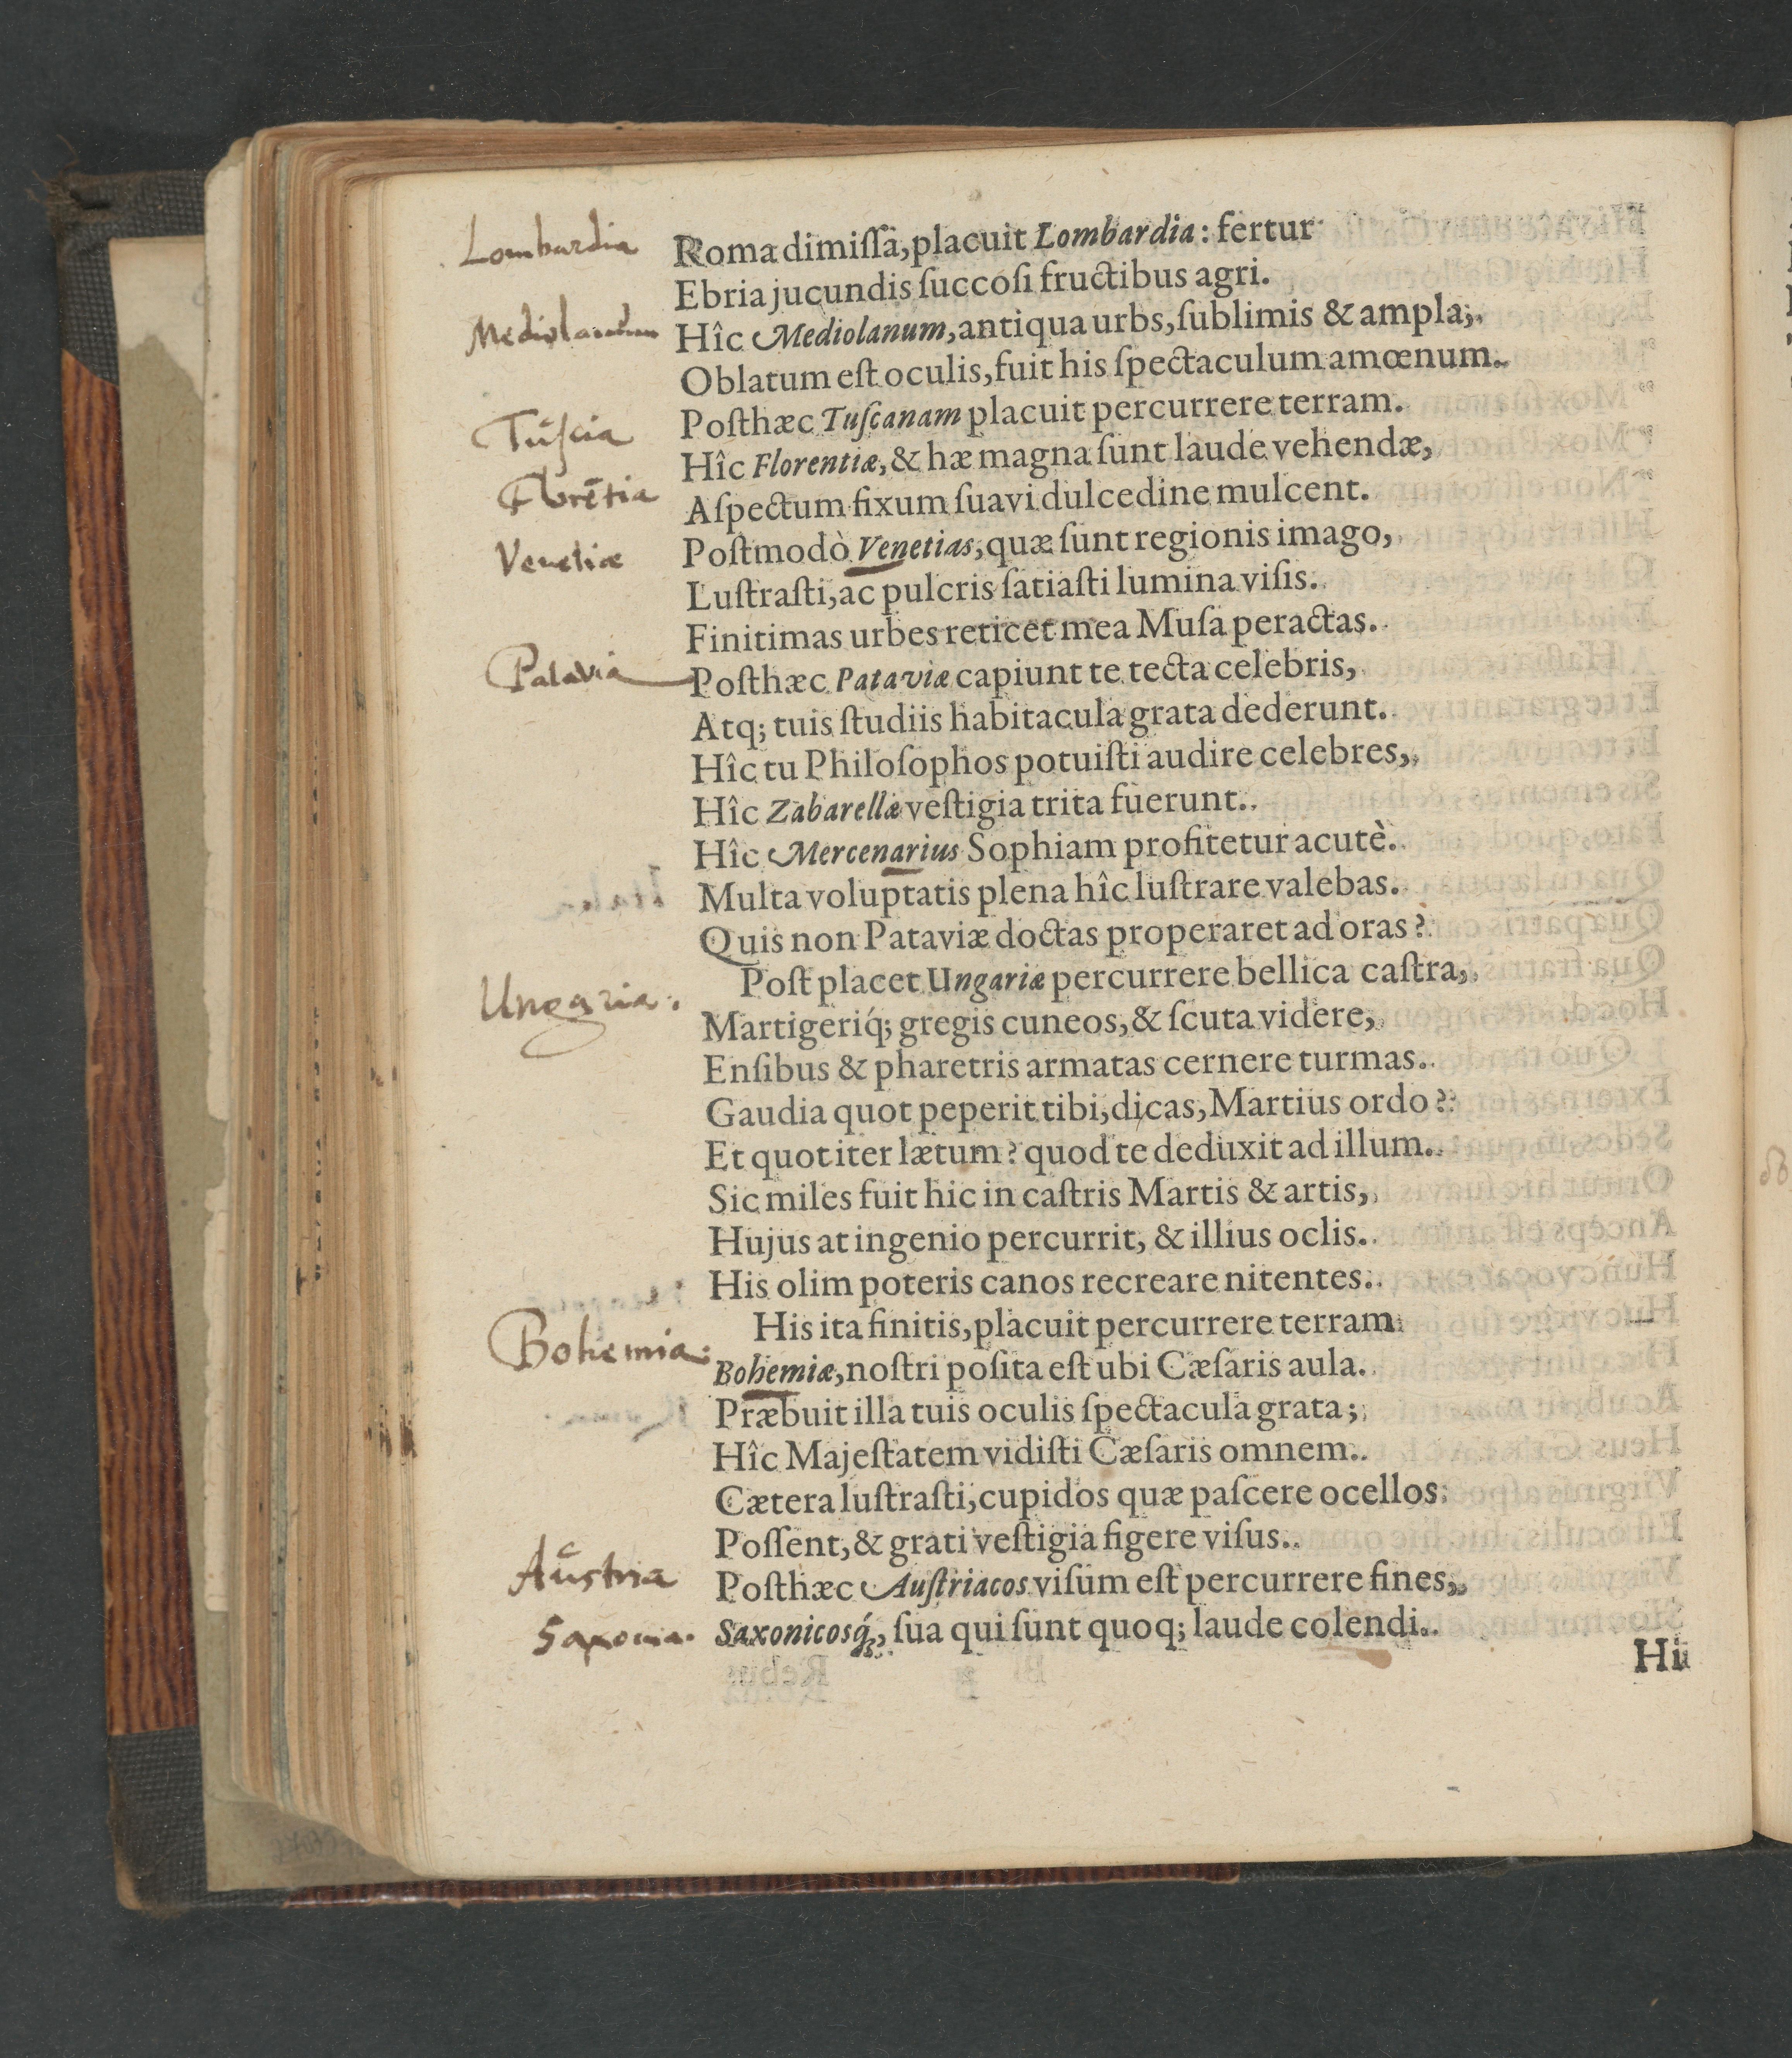 Lombardia
Roma dimiſſà, placuit Lombardia: fertur
Ebria jucundis ſuccoſi fructibus agri.
Mediolanum
Hîc Mediolanum, antiqua urbs, ſublimis & ampla,
Oblatum eſt oculis, fuit his ſpectaculum amœnum.
Tuſcia
Poſthæc Tuſcanam placuit percurrere terram.
Hîc Florentiæ, & hæ magna ſunt laude vehendæ,
Florētia
Aſpectum fixum ſuavi dulcedine mulcent.
Venetiæ
Poſtmodò Venetias, quæ ſunt regionis imago,
Luſtraſti, ac pulcris ſatiaſti lumina viſis.
Finitimas urbes reticet mea Muſa peractas.
Patavia
Poſthæc Pataviæ capiunt te tecta celebris,
Atq; tuis ſtudiis habitacula grata dederunt.
Hîc tu Philoſophos potuiſti audire celebres,
Hîc Zabarellæ veſtigia trita fuerunt.
Hîc Mercenarius Sophiam profitetur acutè.
Multa voluptatis plena hîc luſtrare valebas.
Quis non Pataviæ doctas properaret ad oras?
Ungaria.
Poſt placet Ungariæ percurrere bellica caſtra,
Martigeriq́; gregis cuneos, & ſcuta videre,
Enſibus & pharetris armatas cernere turmas.
Gaudia quot peperit tibi, dicas, Martius ordo?
Et quot iter lætum? quod te deduxit ad illum.
Sic miles fuit hic in caſtris Martis & artis,
Hujus at ingenio percurrit, & illius oclis.
His olim poteris canos recreare nitentes.
His ita finitis, placuit percurrere terram
Bohemia:
Bohemiæ, noſtri poſita eſt ubi Cæſaris aula.
Præbuit illa tuis oculis ſpectacula grata;
Hîc Majeſtatem vidiſti Cæſaris omnem.
Cætera luſtraſti, cupidos quæ paſcere ocellos
Poſſent, & grati veſtigia figere viſus.
Austria
Poſthæc Auſtriacos viſum eſt percurrere fines,
Saxonia.
Saxonicosq́;, ſua qui ſunt quoq; laude colendi.
Hi